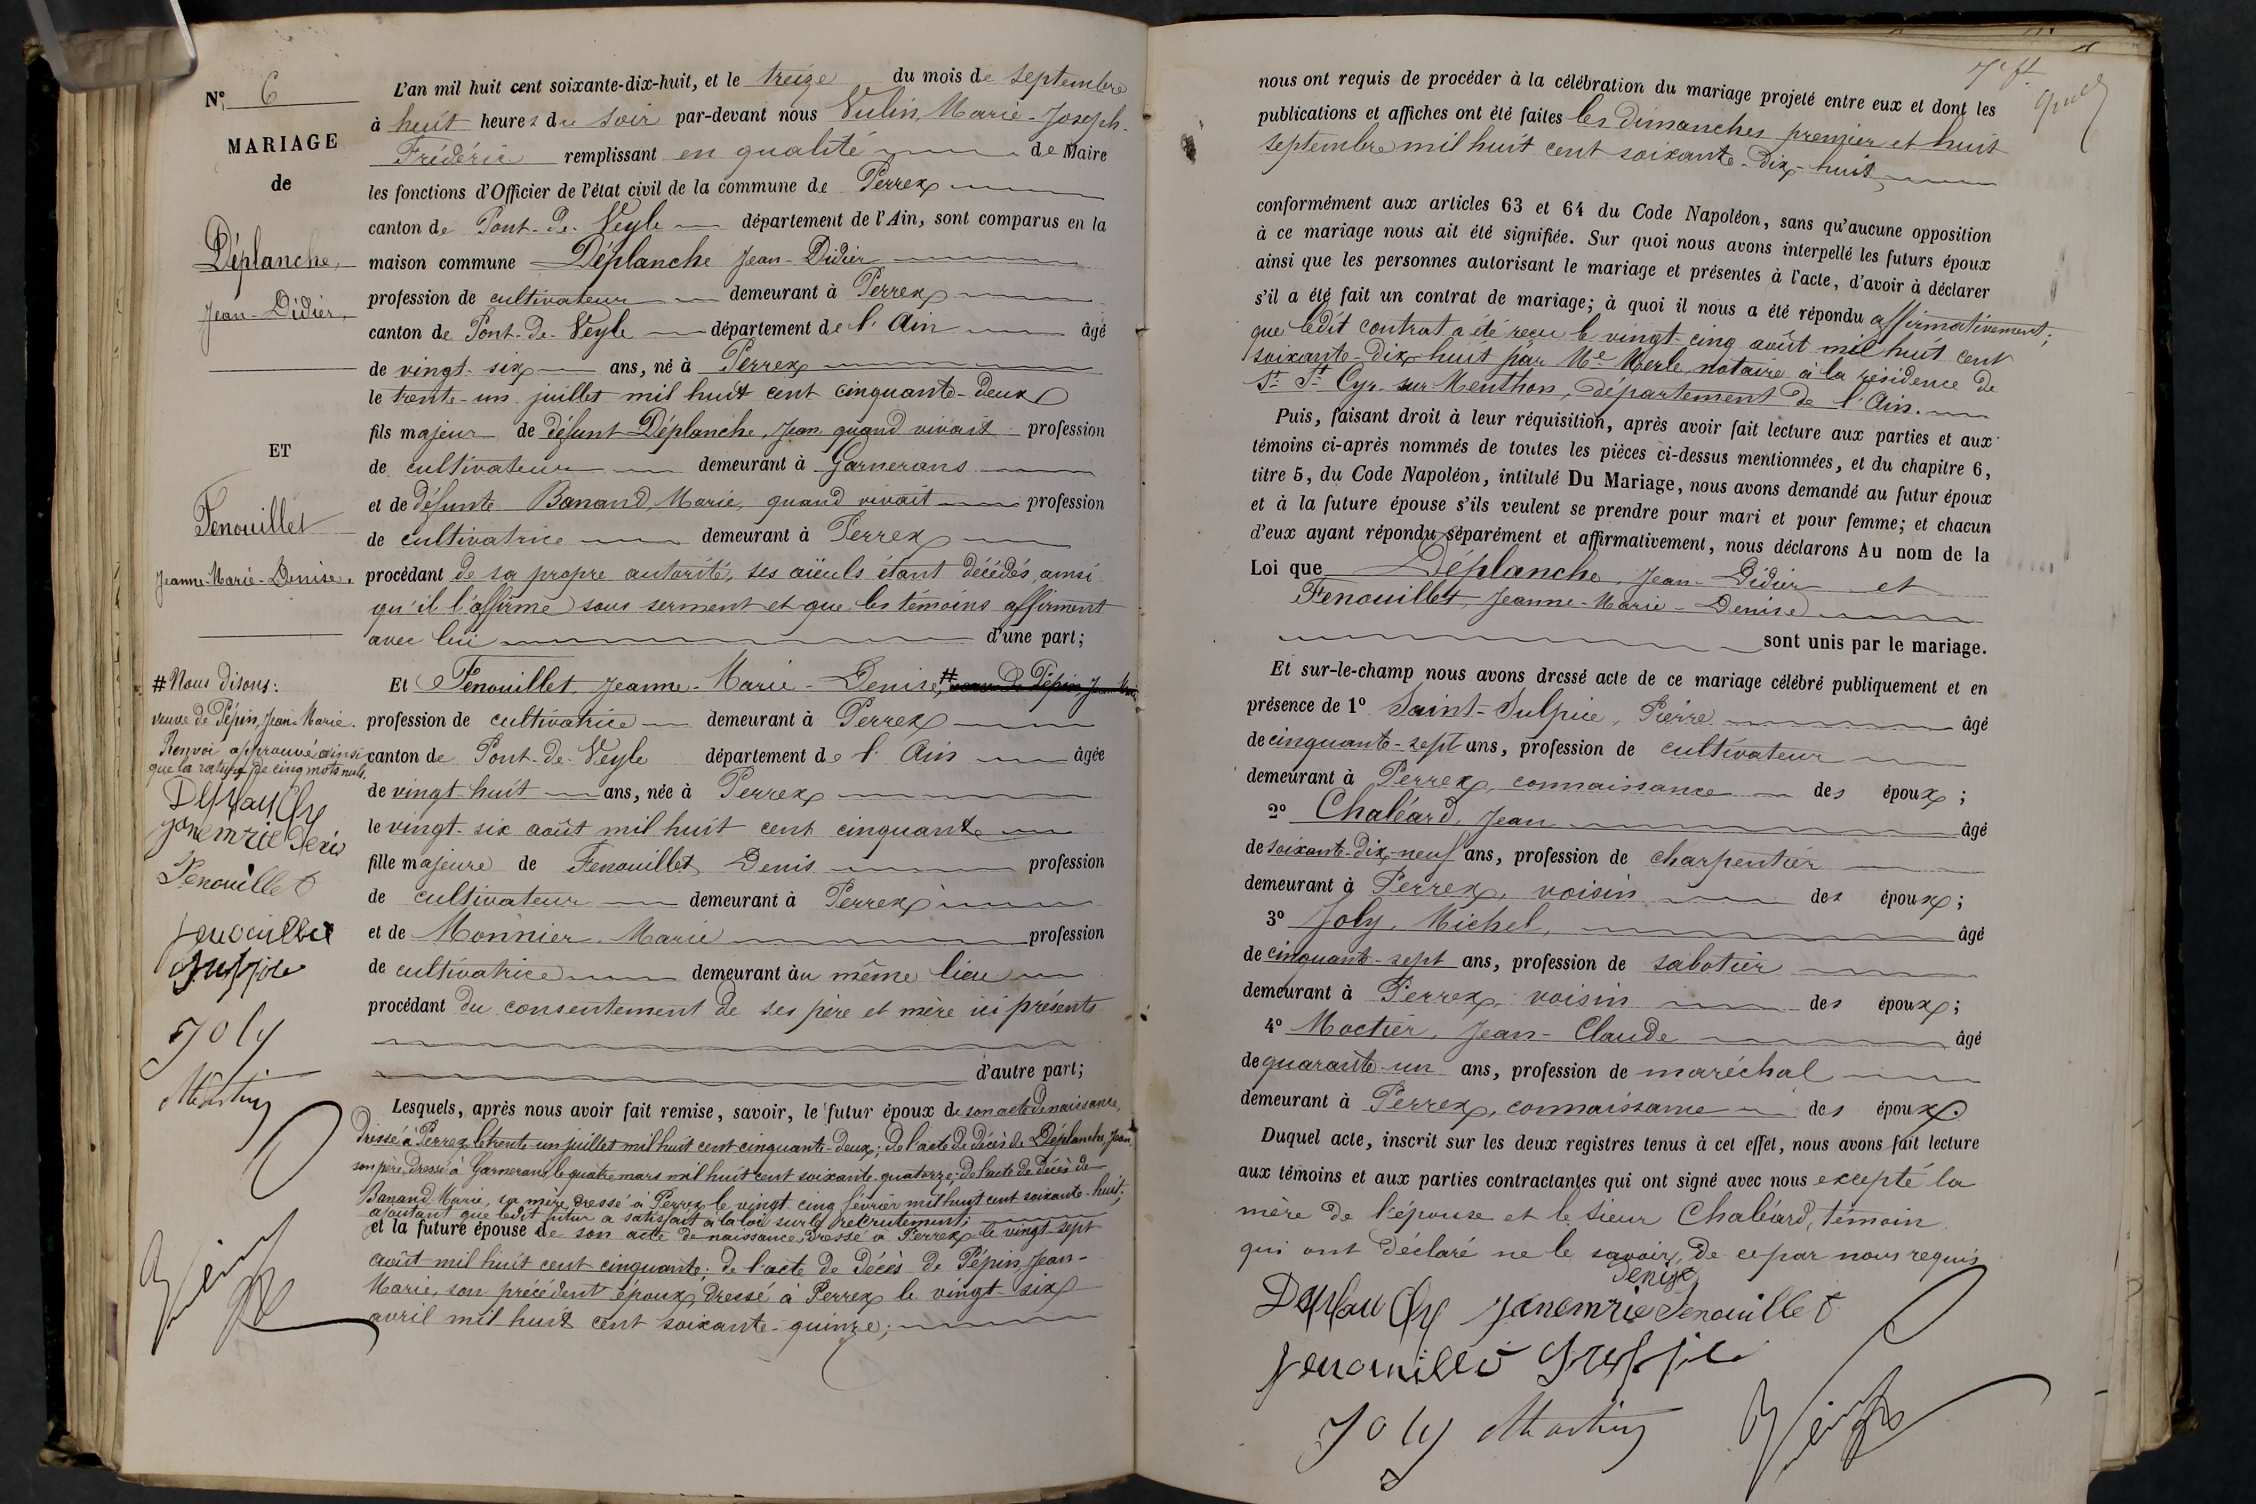 N° 6
MARIAGE
de
Déplanche,
Jean-Didier,
ET
Fenouillet
Jeanne-Marie-Denise.
# Nous disons:
veuve de Pépin, Jean-Marie.
Renvoi approuvé ainsi
que la rature de cinq mots nuls.
Deplanche
janemrie Denis
Fenouillet
fenouillet
Sulpice
Joly
L'an mil huit cent soixante-dix-huit, et le treize du mois de septembre
à huit heures du soir par-devant nous Vulin, Marie-Joseph-
Frédéric remplissant en qualité de Maire
les fonctions d'Officier de l'état civil de la commune de Perrex
canton de Pont-de-Veyle département de l'Ain, sont comparus en la
maison commune Déplanche Jean-Didier
profession de cultivateur demeurant à Perrex
canton de Pont-de-Veyle département de l'Ain âgé
de vingt-six ans, né à Perrex
le trente-un juillet mil huit cent cinquante-deux
fils majeur de défunt Déplanche, Jean quand vivait profession
de cultivateur demeurant à Garnerans
et de défunte Banand, Marie, quand vivait profession
de cultivatrice demeurant à Perrex
procédant de sa propre autorité, ses aïeuls étant décédés, ainsi
qu'il l'affirme sous serment et que les témoins affirment
avec lui d'une part;
Et Fenouillet, Jeanne-Marie-Denise, # veuve de Pépin, Jean Marie
profession de cultivatrice demeurant à Perrex
canton de Pont-de-Veyle département de l'Ain âgée
de vingt-huit ans, née à Perrex
le vingt-six août mil huit cent cinquante
fille majeure de Fenouillet, Denis profession
de cultivateur demeurant à Perrex
et de Monnier, Marie profession
de cultivatrice demeurant àu même lieu
procédant du consentement de ses père et mère ici présents
d'autre part;
Lesquels, après nous avoir fait remise, savoir, le futur époux de son acte de naissance,
dressé à Perrex le trente-un juillet mil huit cent cinquante-deux; de l'acte de décès de Déplanche, Jean,
son père, dressé à Garnerans, le quatre mars mil huit cent soixante-quatorze; de l'acte de décès de
Banand Marie, sa mère, dressé à Perrex le vingt-cinq février mil huit cent soixante-huit;
ajoutant que ledit futur a satisfait à la loi sur le recrutement;
et la future épouse de son acte de naissance, dressé à Perrex le vingt-sept
août mil huit cent cinquante; de l'acte de décès de Pépin, Jean-
Marie, son précédent époux, dressé à Perrex le vingt-six
avril mil huit cent soixante-quinze;
nous ont requis de procéder à la célébration du mariage projeté entre eux et dont les
publications et affiches ont été faites les dimanches premier et huit
septembre mil huit cent soixante-dix-huit
conformément aux articles 63 et 64 du Code Napoléon, sans qu'aucune opposition
à ce mariage nous ait été signifiée. Sur quoi nous avons interpellé les futurs époux
ainsi que les personnes autorisant le mariage et présentes à l'acte, d'avoir à déclarer
s'il a été fait un contrat de mariage; à quoi il nous a été répondu affirmativement;
que ledit contrat a été reçu le vingt-cinq août mil huit cent
soixante-dix-huit par Me Merle, notaire à la résidence de
St St Cyr sur Menthon, département de l'Ain.
Puis, faisant droit à leur réquisition, après avoir fait lecture aux parties et aux
témoins ci-après nommés de toutes les pièces ci-dessus mentionnées, et du chapitre 6,
titre 5, du Code Napoléon, intitulé Du Mariage, nous avons demandé au futur époux
et à la future épouse s'ils veulent se prendre pour mari et pour femme; et chacun
d'eux ayant répondu séparément et affirmativement, nous déclarons Au nom de la
Loi que Déplanche, Jean-Didier et
Fenouillet, Jeanne-Marie-Denise
sont unis par le mariage.
Et sur-le-champ nous avons dressé acte de ce mariage célébré publiquement et en
présence de 1° Saint-Sulpice, Pierre âgé
de cinquante-sept ans, profession de cultivateur
demeurant à Perrex, connaissance des époux;
2° Chaléard, Jean âgé
de soixante-dix-neuf ans, profession de charpentier
demeurant à Perrex, voisin des époux;
3° Joly, Michel, âgé
de cinquante-sept ans, profession de sabotier
demeurant à Perrex, voisin des époux;
4° Moctier, Jean-Claude âgé
de quarante-un ans, profession de maréchal
demeurant à Perrex, connaissance des époux.
Duquel acte, inscrit sur les deux registres tenus à cet effet, nous avons fait lecture
aux témoins et aux parties contractantes qui ont signé avec nous excepté la
mère de l'épouse et le sieur Chaléard, témoin
qui ont déclaré ne le savoir, de ce par nous requis
Denise
Deplanche janemrie Fenouillet
fenouillet Sulpice
Joly